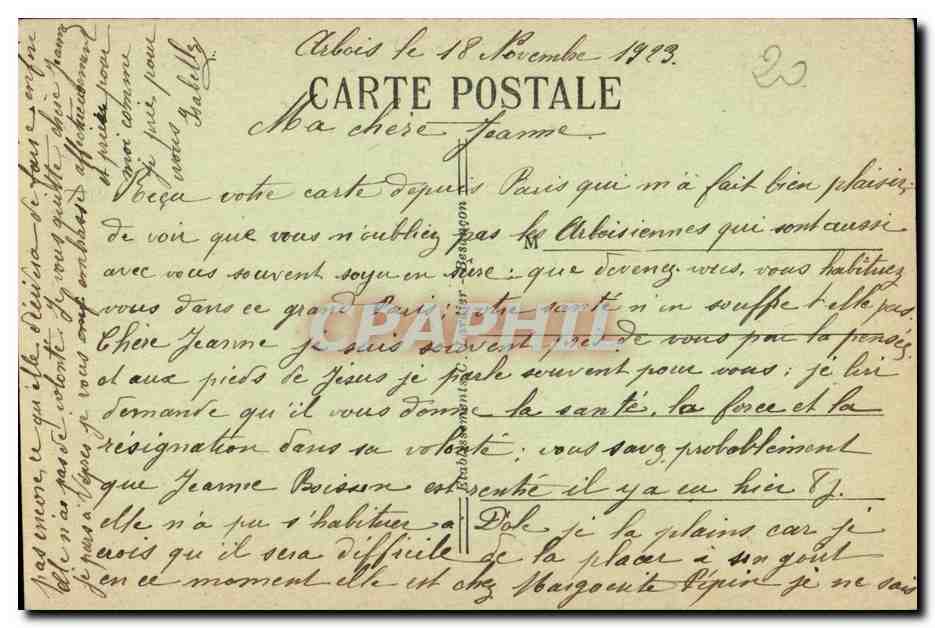 Arbois le 18 Novembre 1923.
20
CARTE POSTALE
Ma chère Jeanne.
Reçu votre carte depuis Paris qui m'a fait bien plaisir
de voir que vous n'oubliez pas les Arboisiennes qui sont aussi
M
avec vous souvent soyez en sûre : que devenez-vous, vous habituez
vous dans ce grand Paris ; votre santé n'en souffre t'elle pas.
Chère Jeanne je suis souvent près de vous par la pensée
et aux pieds de Jésus je parle souvent pour vous ; je lui
demande qu'il vous donne la santé, la force et la
résignation dans sa volonté ; vous savez probablement
que Jeanne Boisson est rentré il y a eu hier 8 j.
elle n'a pu s'habituer a Dole je la plains car je
crois qu'il sera difficile de la placer à son gout
en ce moment elle est chez Margerite Pépin je ne sais
pas encore ce qu'elle décidera de faire enfin
elle n'a pas de volonté. Je vous quitte chère Jeanne
je pars à Vêpres je vous embrasse affectueusement
et priez pour
moi comme
je prie pour
vous
Isabelle
Etablissements Besançon
CPAPHIL